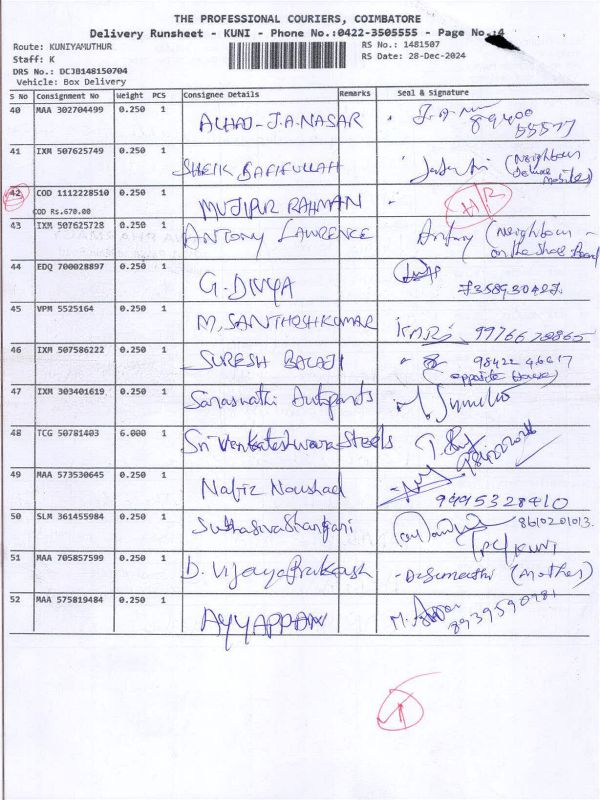 THE PROFESSIONAL COURIERS, COIMBATORE
Delivery Runsheet - KUNI - Phone No.:0422-3505555 - Page No.:4
Route: KUNIYAMUTHUR
RS No.: 1481507
Staff: K
RS Date: 28-Dec-2024
DRS No.: DCJB148150704
Vehicle: Box Delivery
S No Consignment No Weight PCS Consignee Details Remarks Seal & Signature
40 MAA 302704499 0.250 1 ALHAJ-J.A.NASAR 89400
55577
41 IXM 507625749 0.250 1 SHEIK RAFIFULLAH (Neighbour
42 COD 1112228510 0.250 1 MUJIPUR RAHMAN
COD Rs.670.00
43 IXM 507625728 0.250 1 ANTONY LAWRENCE Antony (Neighbour -
on the shop Board
44 EDQ 700028897 0.250 1 G.DIVYA
7358930427
45 VPM 5525164 0.250 1 M.SANTHOSHKUMAR
46 IXM 507586222 0.250 1 SURESH BALAJI 98422 46617
(opposite House)
47 IXM 303401619 0.250 1 Saraswathi Autoparts
48 TCG 50781403 6.000 1 Sri Venkateshwara Steels
49 MAA 573530645 0.250 1 Nafiz Noushad
9495328410
50 SLM 361455984 0.250 1 8610201013
TPC/KUNI
51 MAA 705857599 0.250 1 D. VijayaPrakash - D.Sumathi (Mother)
52 MAA 575819484 0.250 1 AYYAPPAN
8939590981